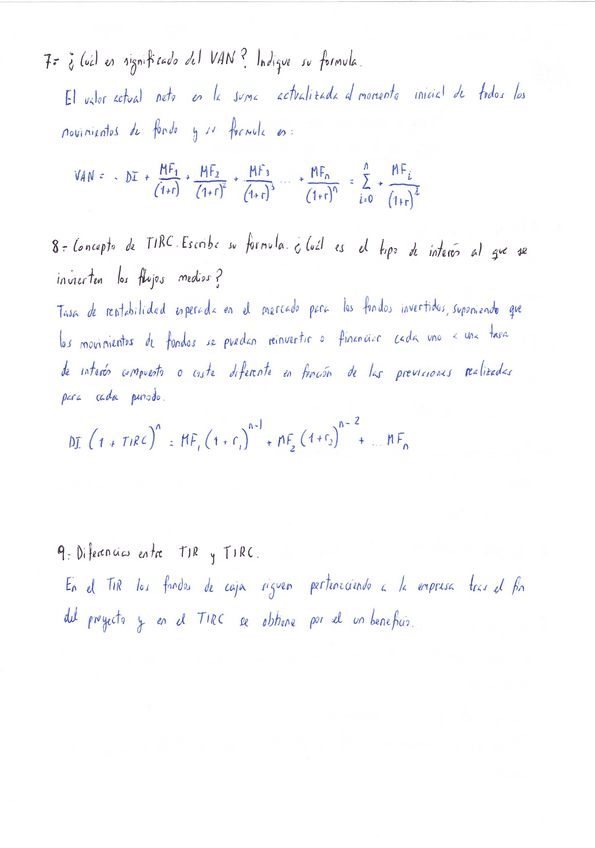 7= ¿Cuál es significado del VAN? Indique su formula.
El valor actual neto es la suma actualizada al momento inicial de todos los
movimientos de fondo y su formula es:
VAN = - DI + MF₁/(1+r) + MF₂/(1+r)² + MF₃/(1+r)³ ... + MFₙ/(1+r)ⁿ = Σ i=0 n + MFᵢ/(1+r)ⁱ
8= Concepto de TIRC. Escribe su formula. ¿Cuál es el tipo de interés al que se
invierten los flujos medios?
Tasa de rentabilidad esperada en el mercado para los fondos invertidos, suponiendo que
los movimientos de fondos se puedan reinvertir o financiar cada uno a una tasa
de interés compuesto o coste diferente en función de las previsiones realizadas
para cada periodo.
DI (1 + TIRC)ⁿ = MF₁ (1+r₁)ⁿ⁻¹ + MF₂ (1+r₂)ⁿ⁻² + ... MFₙ
9= Diferencias entre TIR y TIRC.
En el TIR los fondos de caja siguen perteneciendo a la empresa tras el fin
del proyecto y en el TIRC se obtiene por el un beneficio.